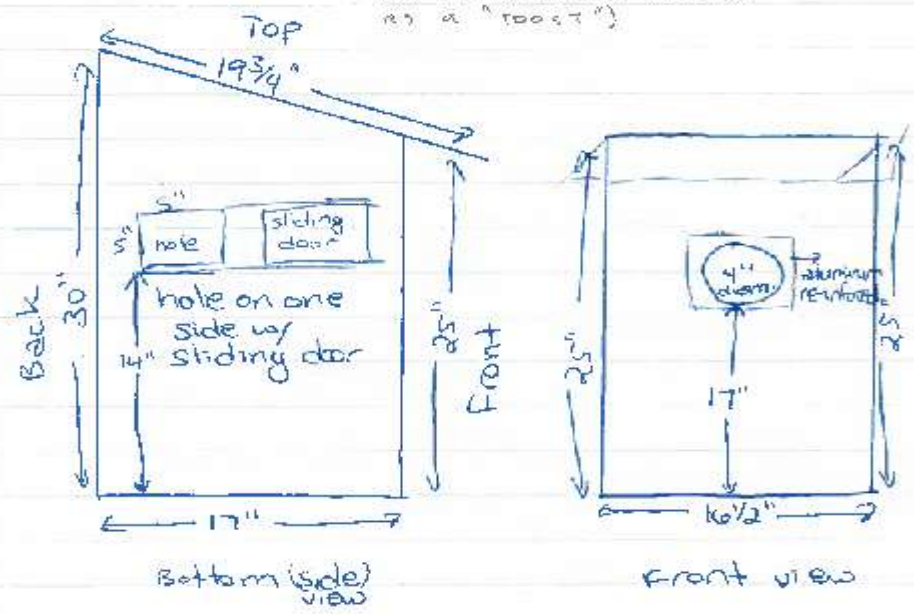 as a "roost")
Top
19 3/4"
5"
5"
hole
sliding
door
hole on one
side w/
sliding door
14"
Back
30"
25"
Front
17"
Bottom (side)
view
25"
4"
diam.
aluminum
17"
25"
16 1/2"
Front view